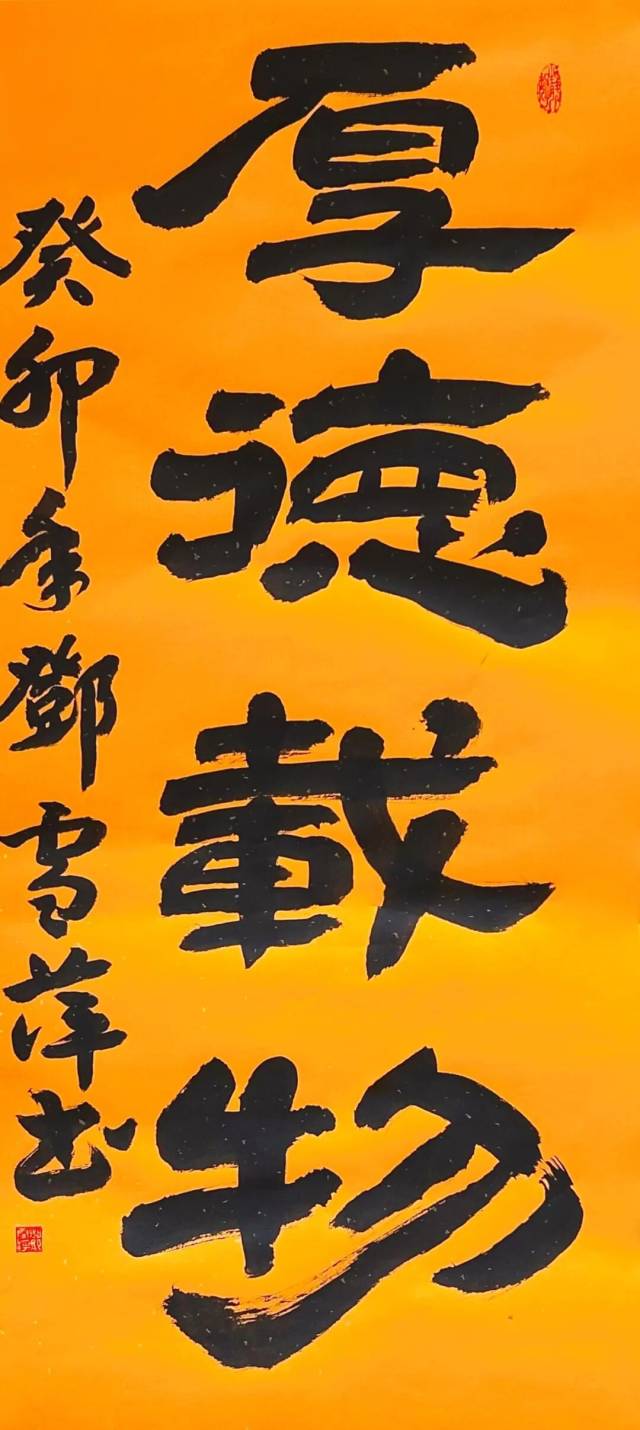 厚德載物
癸卯年鄧雪萍书